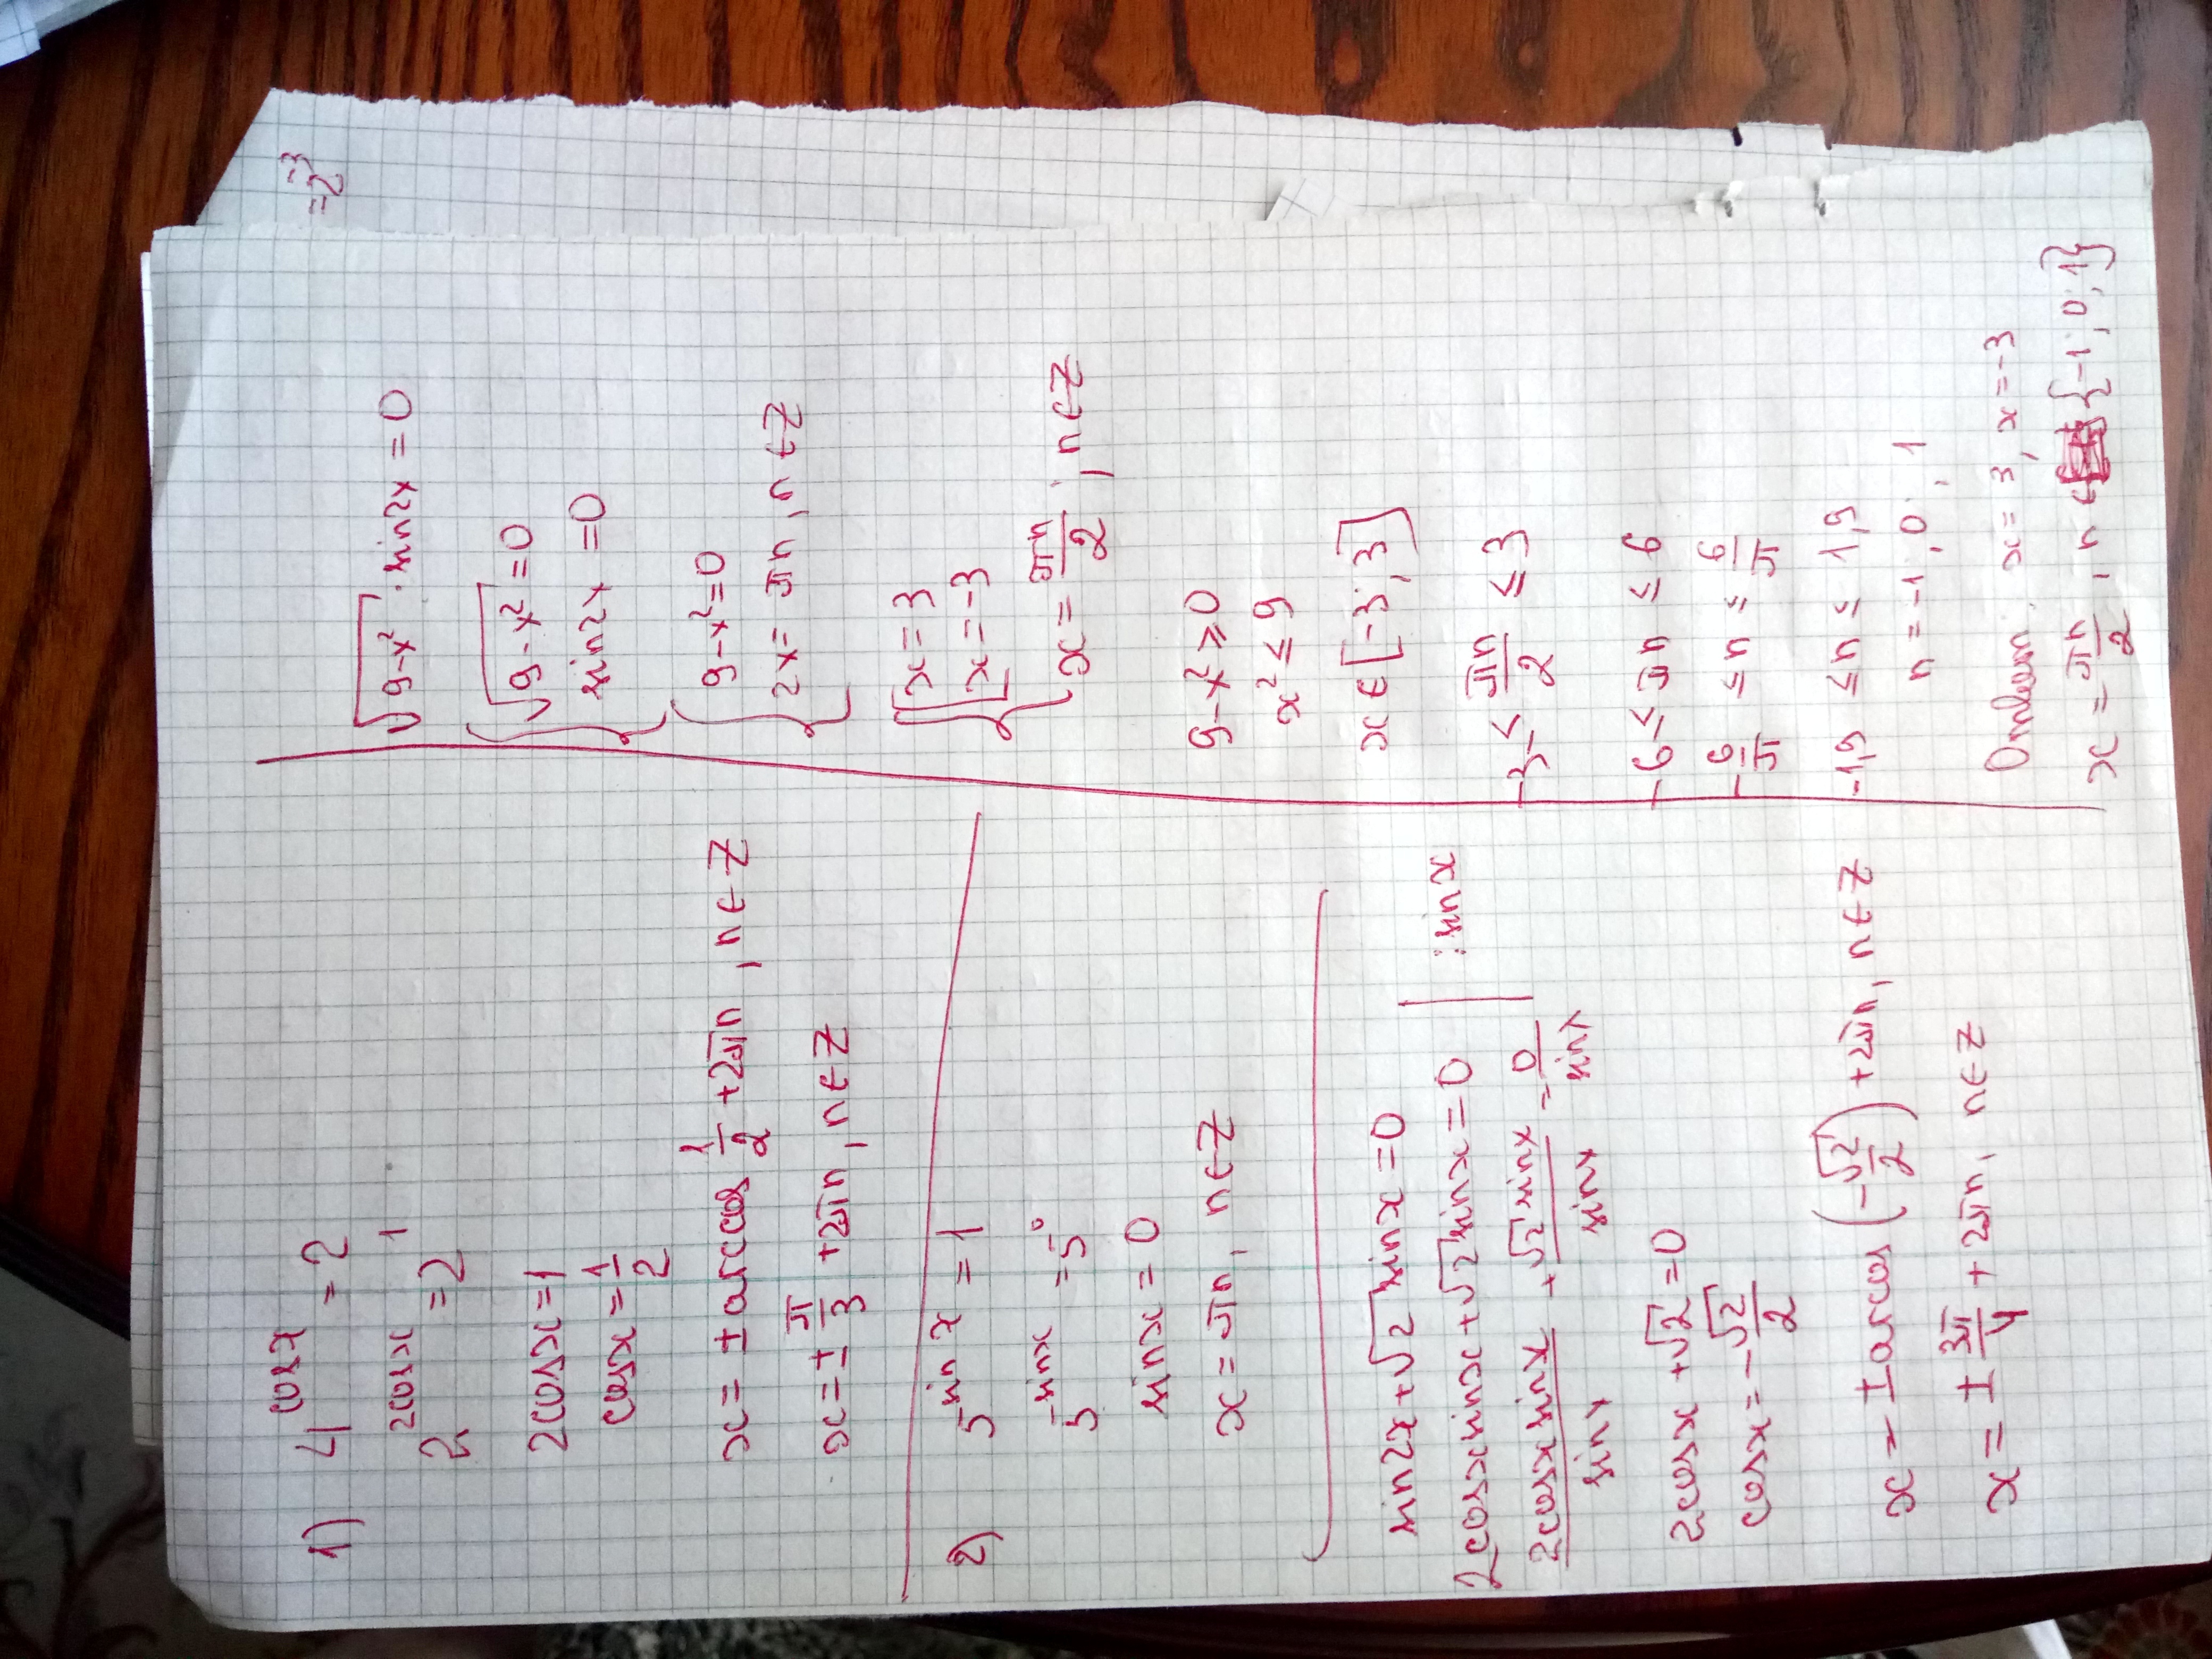 1) 4^cosx = 2
2^2cosx = 2^1
2cosx=1
cosx = 1/2
x = ± arccos 1/2 + 2πn, n∈Z
x = ± π/3 + 2πn, n∈Z
2) 5^sinx = 1
5^sinx = 5^0
sinx = 0
x = πn, n∈Z
sin2x+√2 sinx=0
2cosxsinx+√2sinx=0 | :sinx
2cosxsinx/sinx + √2sinx/sinx = 0/sinx
2cosx+√2=0
cosx=-√2/2
x = ± arcos (-√2/2) +2πn, n∈Z
x = ± 3π/4 + 2πn, n∈Z
√9-x² · sin2x=0
{ √9-x²=0
sin2x =0
{ 9-x²=0
2x= πn, n∈Z
{ [ x=3
x=-3
x= πn/2, n∈Z
9-x²≥0
x²≤9
x∈[-3;3]
-3≤ πn/2 ≤3
-6≤πn≤6
-6/π ≤n≤ 6/π
-1,9 ≤n≤ 1,9
n=-1; 0; 1
x=3, x=-3
x= πn/2, n∈{-1; 0; 1}
=2^-3